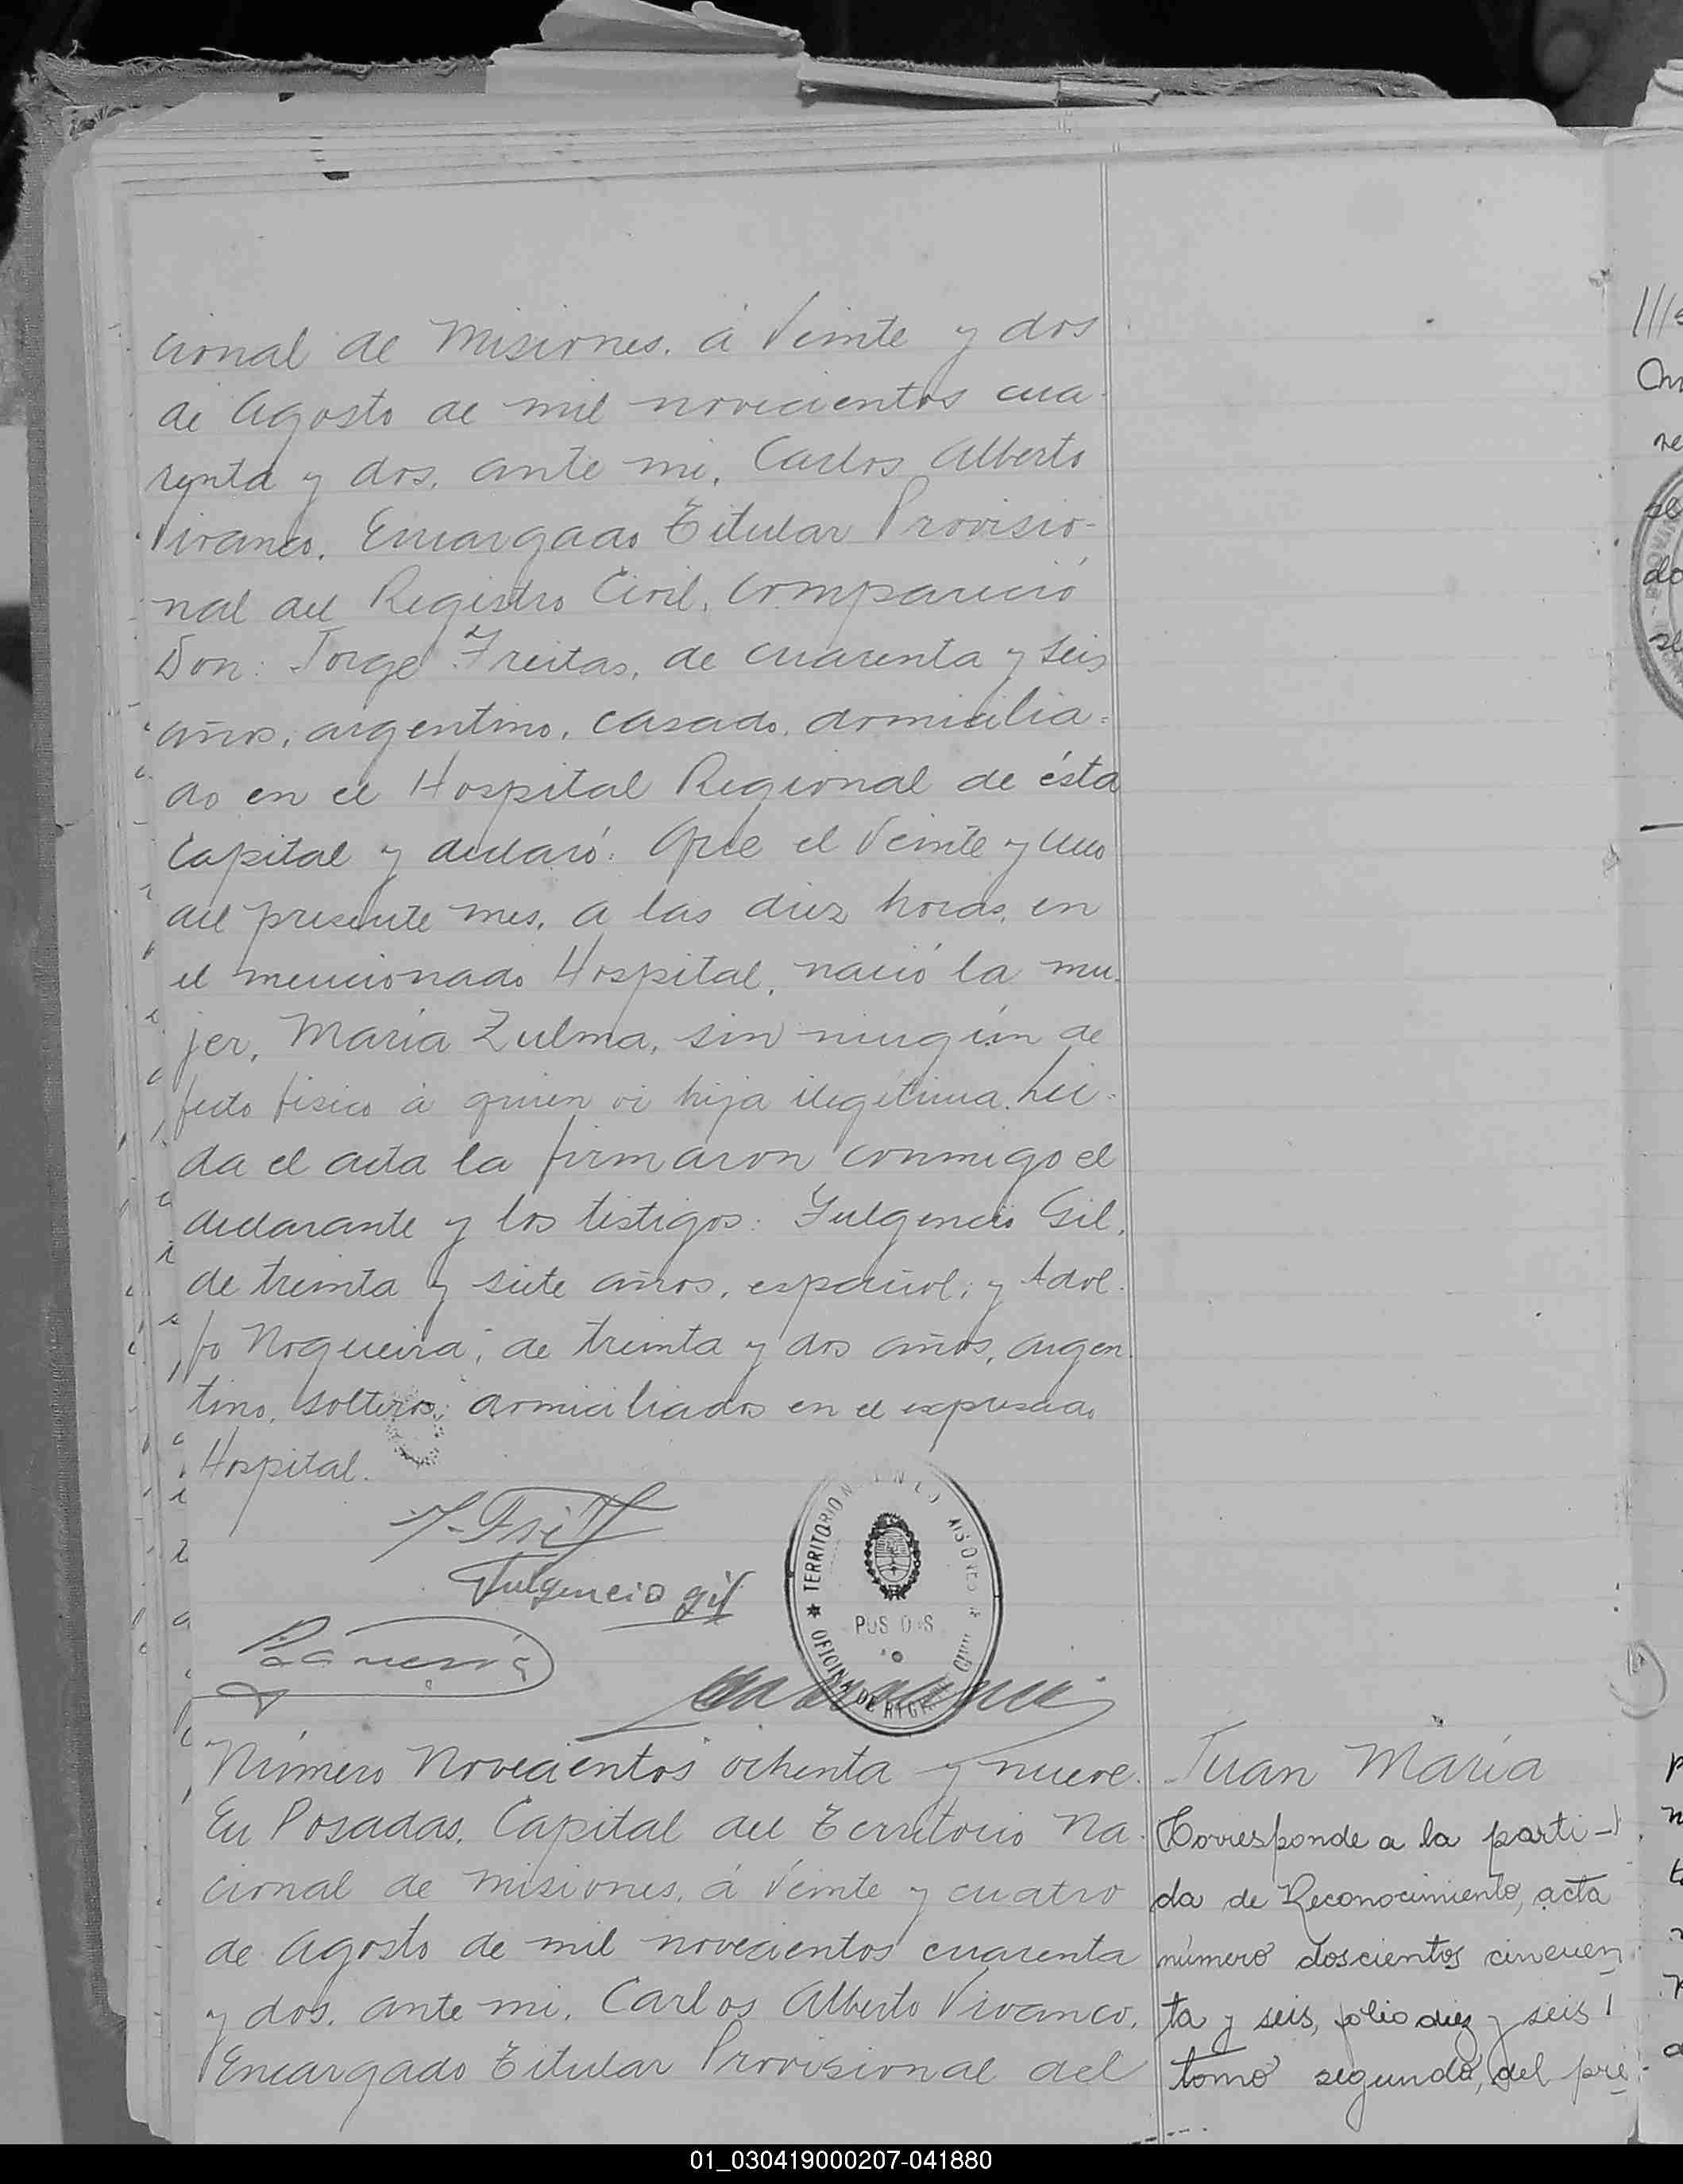 cional de Misiones. á Veinte y dos
de Agosto de mil novecientos cua-
renta y dos. ante mi. Carlos Alberto
Vivanco. Encargado Titular Provisio-
nal del Registro Civil. compareció
Don: Jorge Freitas, de cuarenta y seis
años, argentino. casado. domicilia-
do en el Hospital Regional de ésta
Capital y declaró: Que el Veinte y uno
del presente mes. a las diez horas, en
el mencionado Hospital, nació la mu-
jer, Maria Zulma, sin ningún de
fecto fisico á quien vi hija ilegítima. Lei-
da el acta la firmaron conmigo el
declarante y los testigos: Fulgencio Gil,
de treinta y siete años, español; y Adol-
fo Nogueira; de treinta y dos años, argen-
tino, solteros; domiciliados en el expresado
Hospital.
Fulgencio Gil
TERRITORIO
POSADAS
OFICINA DE REGISTRO CIVIL
Número Novecientos ochenta y nueve.
En Posadas. Capital del Territorio Na-
cional de Misiones. á Veinte y cuatro
de Agosto de mil novecientos cuarenta
y dos. ante mi. Carlos Alberto Vivanco.
Encargado Titular Provisional del
Juan María
Corresponde a la parti-
da de Reconocimiento, acta
número doscientos cincuen
ta y seis, folio diez y seis
tomo segundo, del pre
01_030419000207-041880